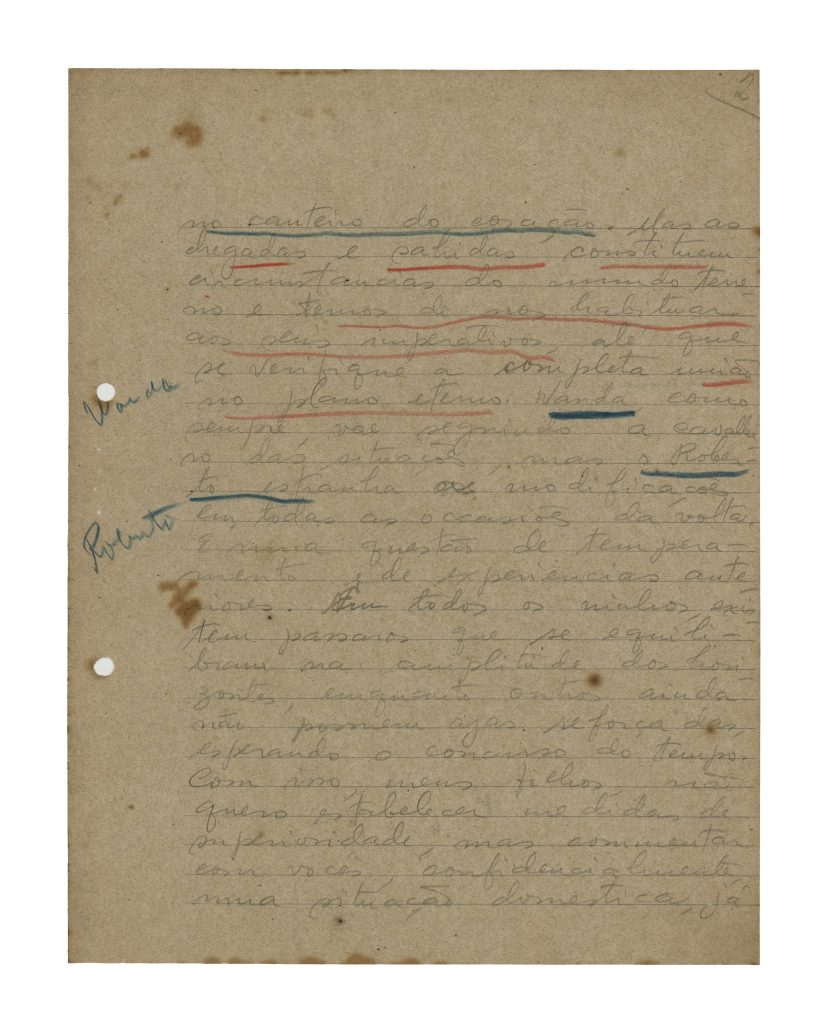 2
no canteiro do coração. Mas as
chegadas e sahidas constituem
circumstancias do mundo terre-
no e temos de nos habituar
aos seus imperativos, até que
se verifique a completa união
no plano eterno. Wanda como
Wanda
sempre, vae seguindo a cavallei
ro das situações, mas o Rober-
to estranha as modificações
Roberto
em todas as occasiões da volta.
É uma questão de tempera-
mento e de experiencias ante
riores. Em todos os ninhos, exis
tem passaros que se equili-
bram na amplitude dos hori
zontes, emquanto outros ainda
não possuem azas reforçadas,
esperando o concurso do tempo.
Com isso, meus filhos, não
quero estabelecer medidas de
superioridade, mas commentar
com vocês, confidencialmente,
uma situação domestica, já